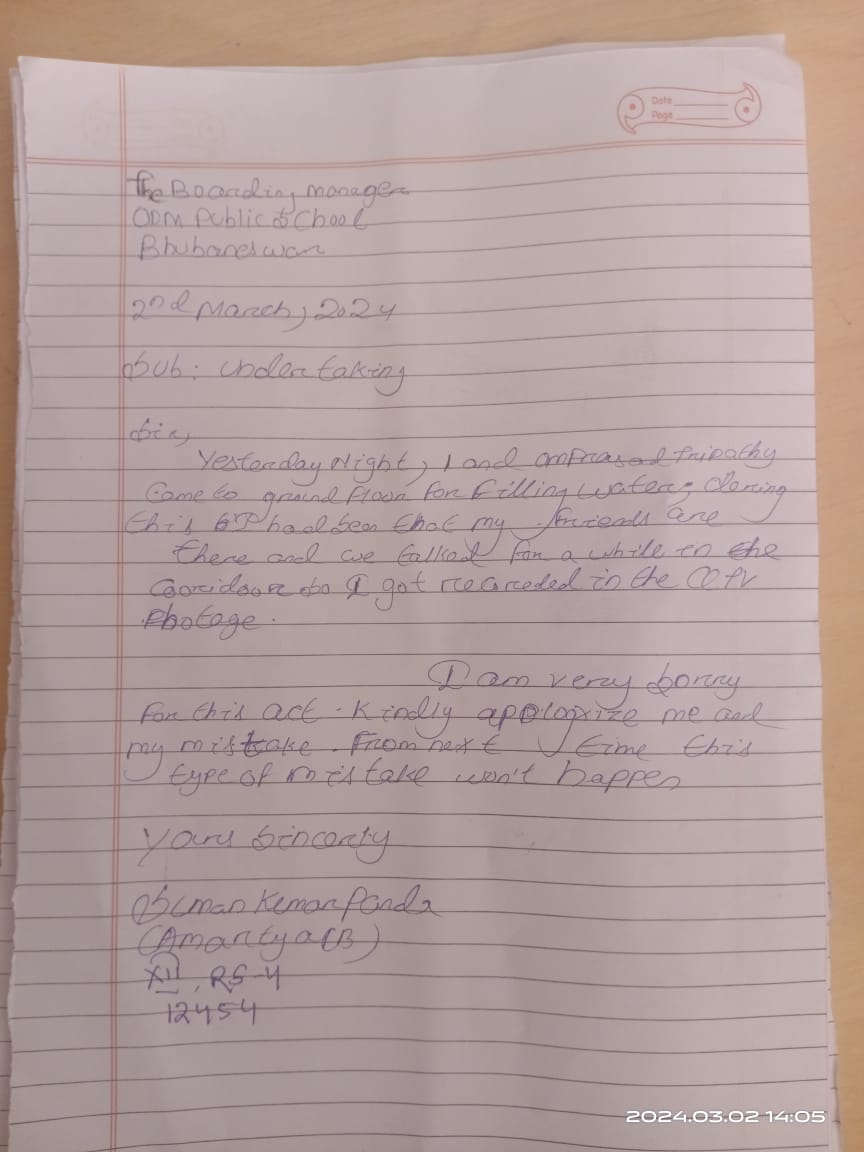 Date
Page
The Boarding manager
ODM Public School
Bhubaneswar
2nd March, 2024
Sub: Undertaking
Sir,
Yesterday Night, I and Omprasad Tripathy
Came to ground floor for filling water, During
this it had been that my friends are
there and we talked for a while in the
Cooridoor so I got recorded in the CCTV
Photage.
I am very sorry
For this act. Kindly apologxize me and
my mistake. From next time this
type of mistake won't happen
Yours Sincerly
Suman Kumar Panda
(Amartya(B)
XII, RS-4
12454
2024.03.02 14:05